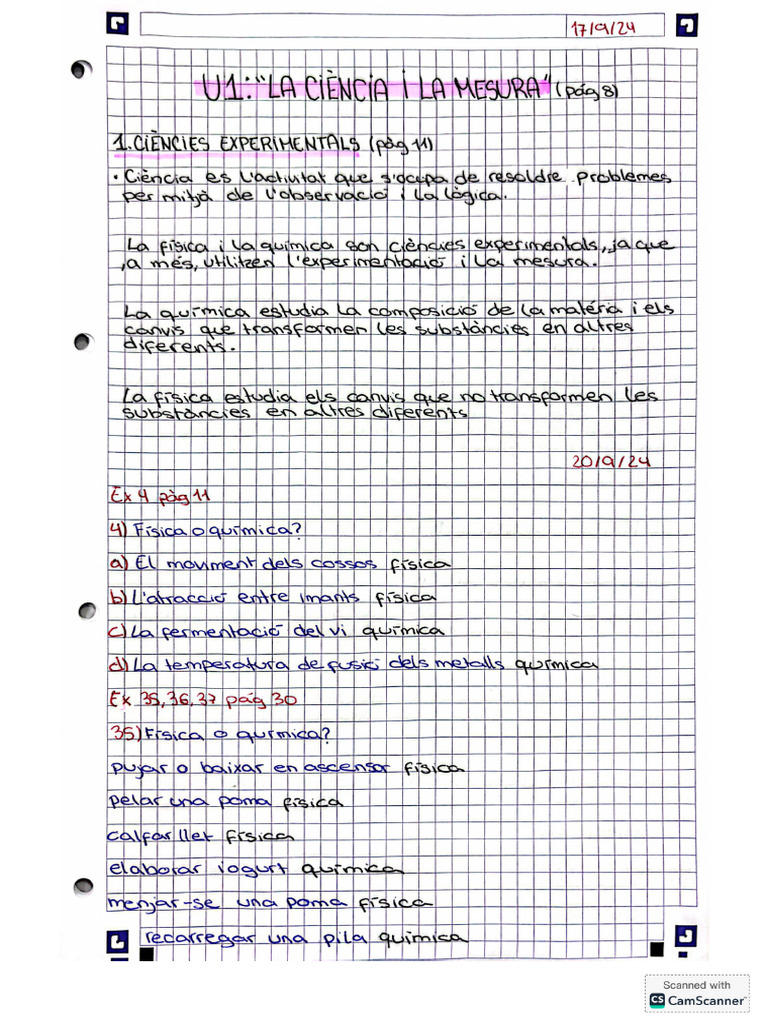 17/9/24
U1: "LA CIÈNCIA i LA MESURA" (pág 8)
1. CIÈNCIES EXPERIMENTALS (pàg 11)
· Ciència es l'activitat que s'ocupa de resoldre problemes
per mitjà de l'observació i la lògica.
La física i la química son ciències experimentals, ja que
,a més, utilitzen l'experimentació i la mesura.
La química estudia la composició de la matéria i els
canvis que transformen les substàncies en altres
diferents.
La física estudia els canvis que no transformen les
substàncies en altres diferents
20/9/24
Ex 4 pàg 11
4) Física o química?
a) El moviment dels cossos física
b) L'atracció entre imants física
c) La fermentació del vi química
d) La temperatura de fusió dels metalls química
Ex 35, 36, 37 pág 30
35) Física o química?
pujar o baixar en ascensor física
pelar una poma física
calfar llet física
elaborar iogurt química
menjar-se una poma física
recarregar una pila química
Scanned with
CS CamScanner